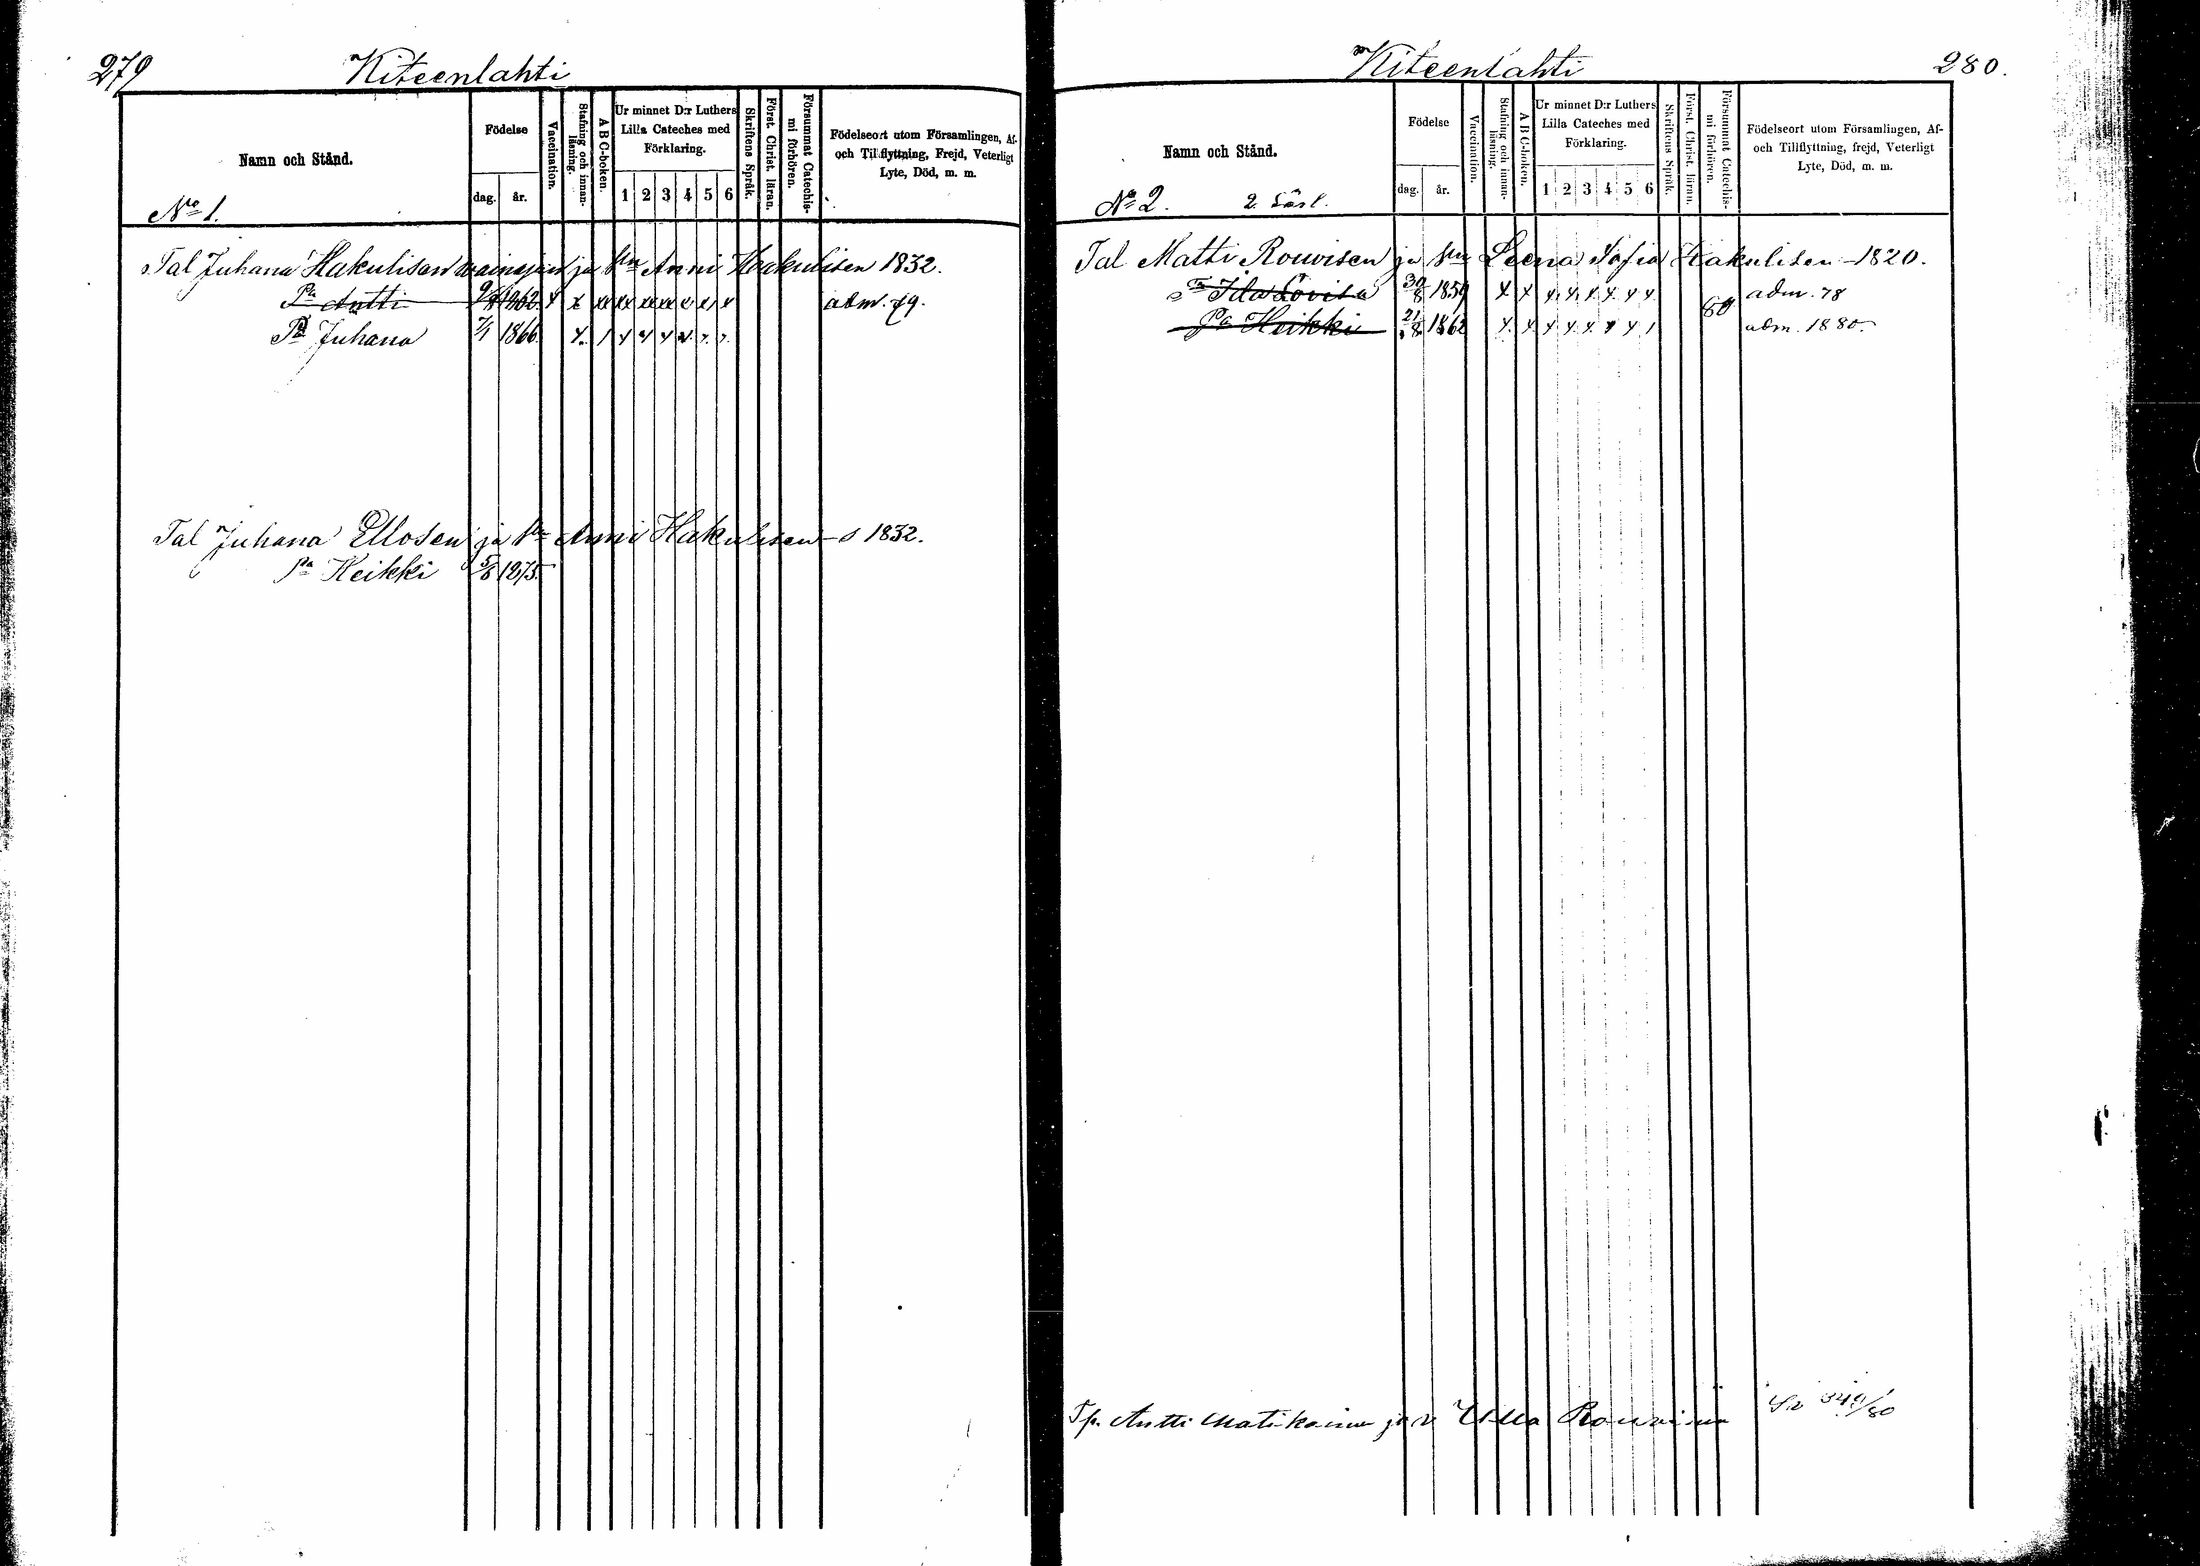 279
Kiteenlahti
Namn och Stånd.
No 1.
Födelse
dag. år.
Vaccination.
Stafning och innan-läsning.
A B C-boken.
Ur minnet D:r Luthers
Lilla Cateches med
Förklaring.
1 2 3 4 5 6
Skriftens Språk.
Först. Christ. läran.
Försummat Catechis-mi förhören.
Födelseort utom Församlingen, Af-
och Tillflyttning, Frejd, Veterligt
Lyte, Död, m. m.
Tal Juhana Hakulisen ja Anni Hakulisen 1832.
Pa Antti 1862. adm. 79.
Pa Juhana 7/1 1866.
Tal Juhana Ellosen ja Anni Hakulisen s 1832.
Pa Heikki 5/8 1875.
Kiteenlahti
280.
Namn och Stånd.
No 2. 2. Särl.
Födelse
dag. år.
Vaccination.
Stafning och innan-läsning.
A B C-boken.
Ur minnet D:r Luthers
Lilla Cateches med
Förklaring.
1 2 3 4 5 6
Skriftens Språk.
Först. Christ. läran.
Försummat Catechis-mi förhören.
Födelseort utom Församlingen, Af-
och Tillflyttning, frejd, Veterligt
Lyte, Död, m. m.
Tal Matti Rouvisen ja Leena Sofia Hakulisen - 1820.
Ida Lovisa 30/8 1859 adm. 78
Pa Heikki 21/8 1862 80 adm. 1880.
Tp. Antti Matikainen ja v Ulla Rouvinen 349/80